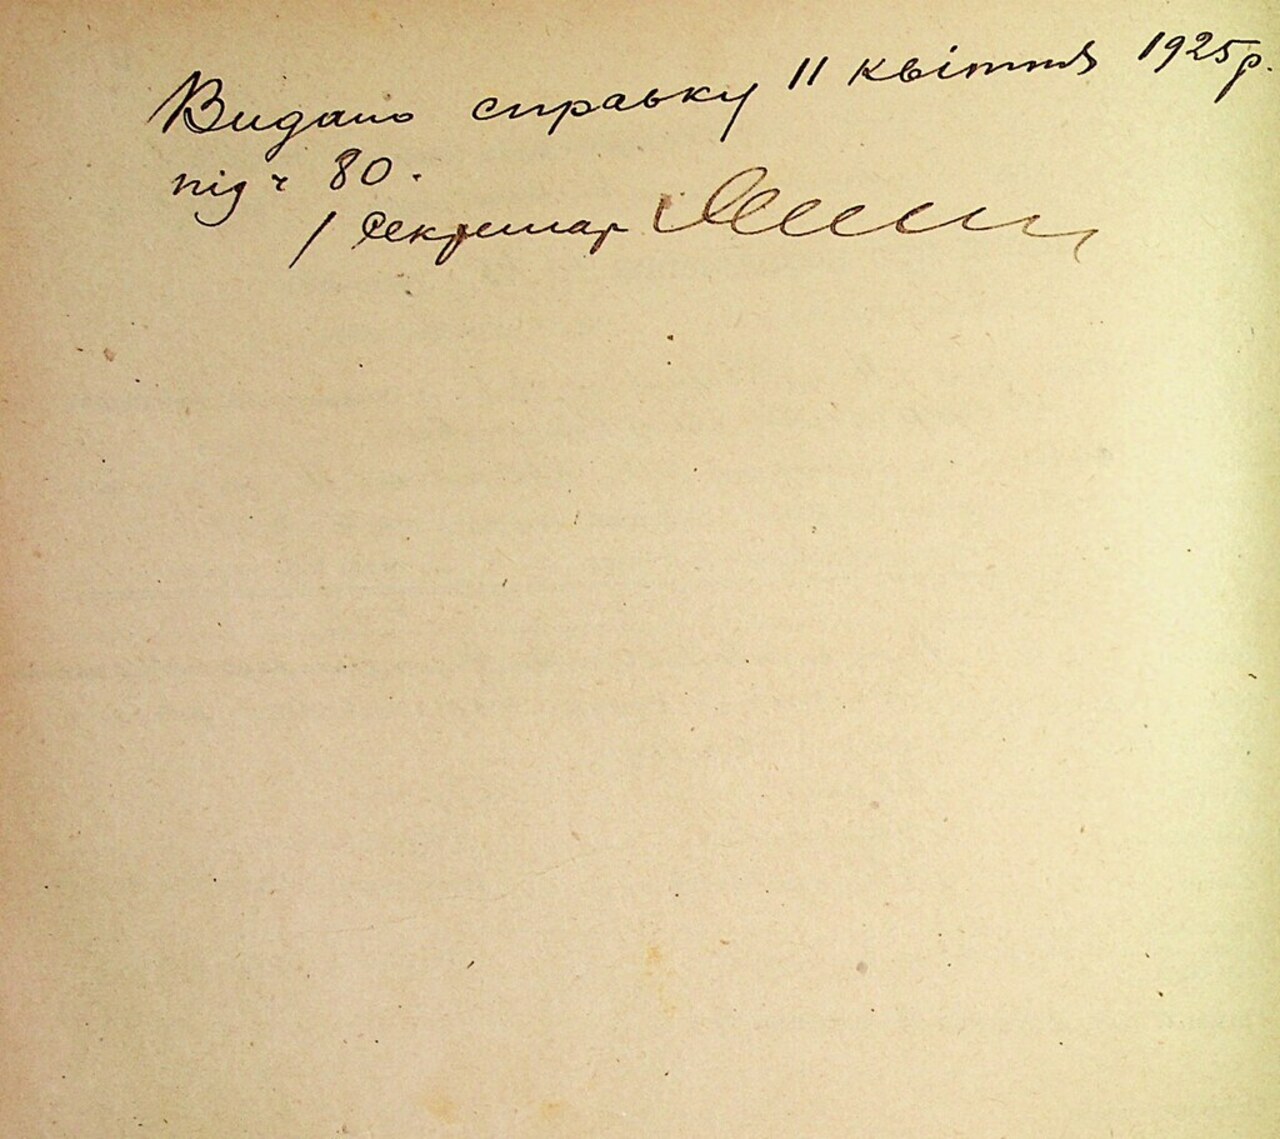 Видано справку 11 квіття 1925р.
під ч 80.
/ Секретар